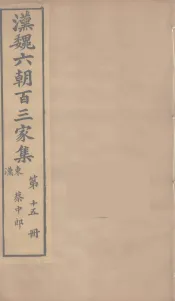 漢魏六朝百三家集
東漢
蔡中郎
第十五冊